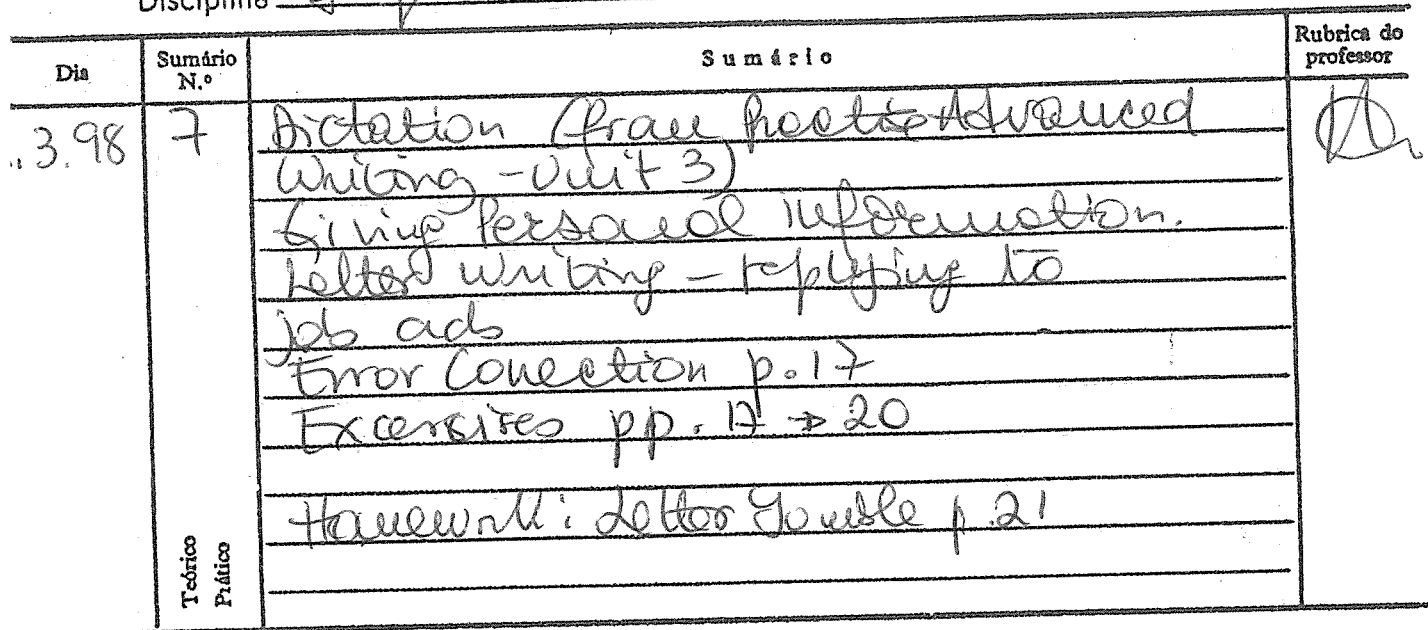 Disciplina
Dia
Sumário N.º
Sumário
Rubrica do professor
.. 3.98
7
Dictation (from Practise Advanced
Writing - Unit 3)
Giving Personal information.
Letter writing - replying to
job ads
Error Correction p.17
Excersises pp. 17 → 20
Homework: Letter Jumble p.21
Teórico
Prático